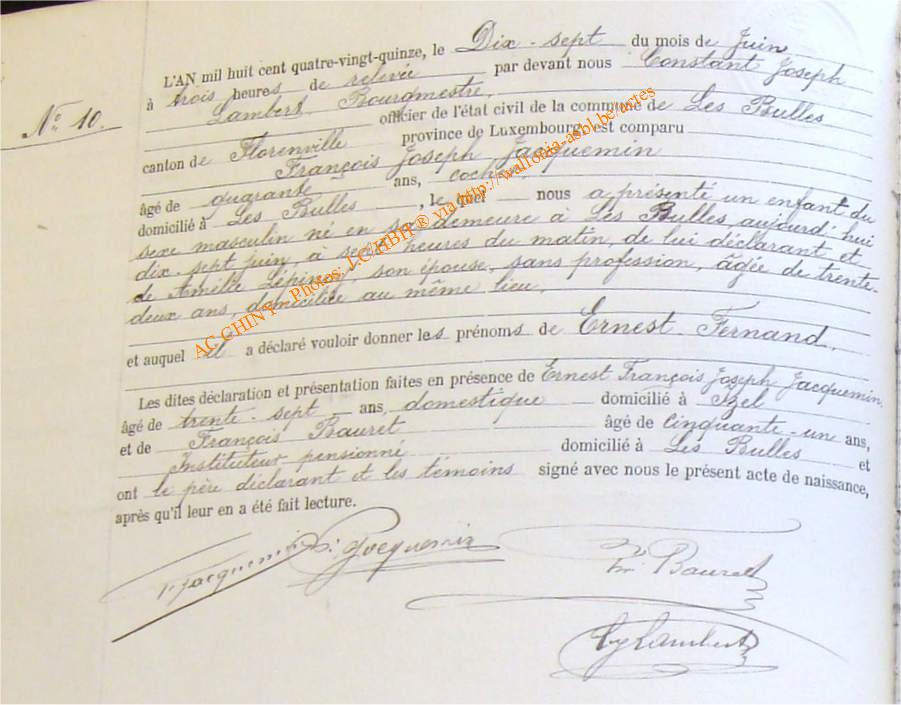 L'AN mil huit cent quatre-vingt-quinze, le Dix-sept du mois de Juin
à trois heures de relevée par devant nous Constant Joseph
Lambert Bourgmestre,
No 10.
officier de l'état civil de la commune de Les Bulles
canton de Florenville province de Luxembourg, est comparu
François Joseph Jacquemin
âgé de quarante ans, cocher
domicilié à Les Bulles, le quel nous a présenté un enfant du
sexe masculin né en sa demeure à Les Bulles, aujourd'hui
dix-sept juin, à sept heures du matin, de lui déclarant et
de Amélie Lépine, son épouse, sans profession, âgée de trente-
deux ans, domiciliée au même lieu,
et auquel il a déclaré vouloir donner les prénoms de Ernest Fernand.
Les dites déclaration et présentation faites en présence de Ernest François Joseph Jacquemin,
âgé de trente-sept ans, domestique domicilié à Izel
et de François Bauret âgé de Cinquante-une ans,
Instituteur pensionné domicilié à Les Bulles et
ont le père déclarant et les témoins signé avec nous le présent acte de naissance,
après qu'il leur en a été fait lecture.
Jacquemin Jacquemin
Bauret
Lambert
AC CHINY - Photos: J.C HBH ® via http://wallonia-asbl.be/actes